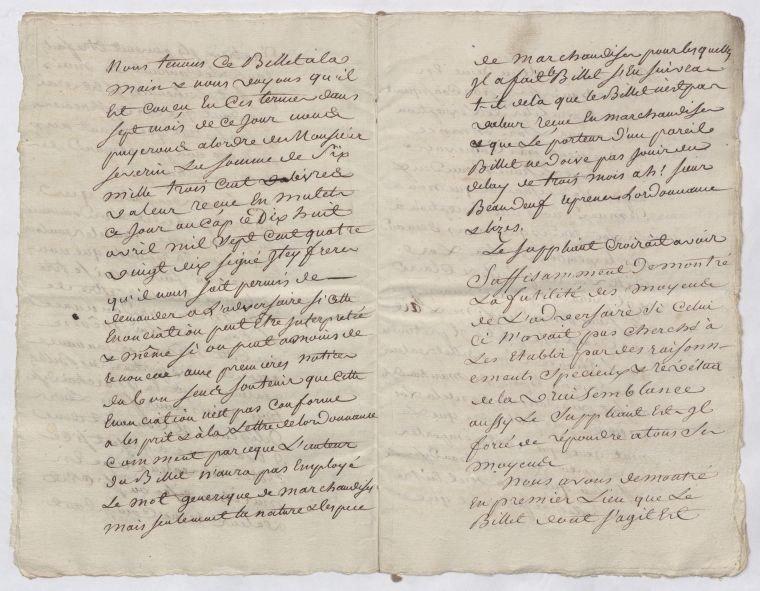 Nous tenons ce Billet à la
main & nous voyons qu'il
Est concu En ces termes dans
sept mois de ce Jour nous
payerons a lordre de Monsieur
severin La somme de Six
mille trois cent livres
valeur reçue En mulets
ce Jour au Cap ce Dix huit
avril mil Sept Cent quatre
vingt dix signé frerer
qu'il nous soit permis de
demander a L'adversaire si cette
Enonciation peut Etre Interpretée
& même si on peut a moins de
renoncer aux premières notions
du bon sens soutenir que Cette
Enonciation n'est pas conforme
a l'esprit & à la Lettre de lordonnance
Comment parceque L'auteur
du Billet n'aura pas Employé
Le mot generique de marchandises
mais seulement la nature & l'espece
de marchandises pour lesquelles
Jl a fait le Billet s'En suivra
t-il dela que le Billet n'est pas
valeur reçue En marchandises
& que Le porteur d'un pareil
Billet ne doive pas jouir du
delay de trois mois ah! sieur
Beaudeuf reprenez Lordonnance
& lizes.
Le suppliant Croirait avoir
Suffisamment Demontré
La futilité des moyens
de L'adversaire Si Celui
ci n'avait pas cherché à
Les Etablir par des raisonn-
ements Spécieux &
de la vraisemblance
aussy Le Suppliant Est-jl
forcé de répondre a tous Ses
moyens
Nous avons demontré
En premier Lieu que Le
Billet dont s'agit Est